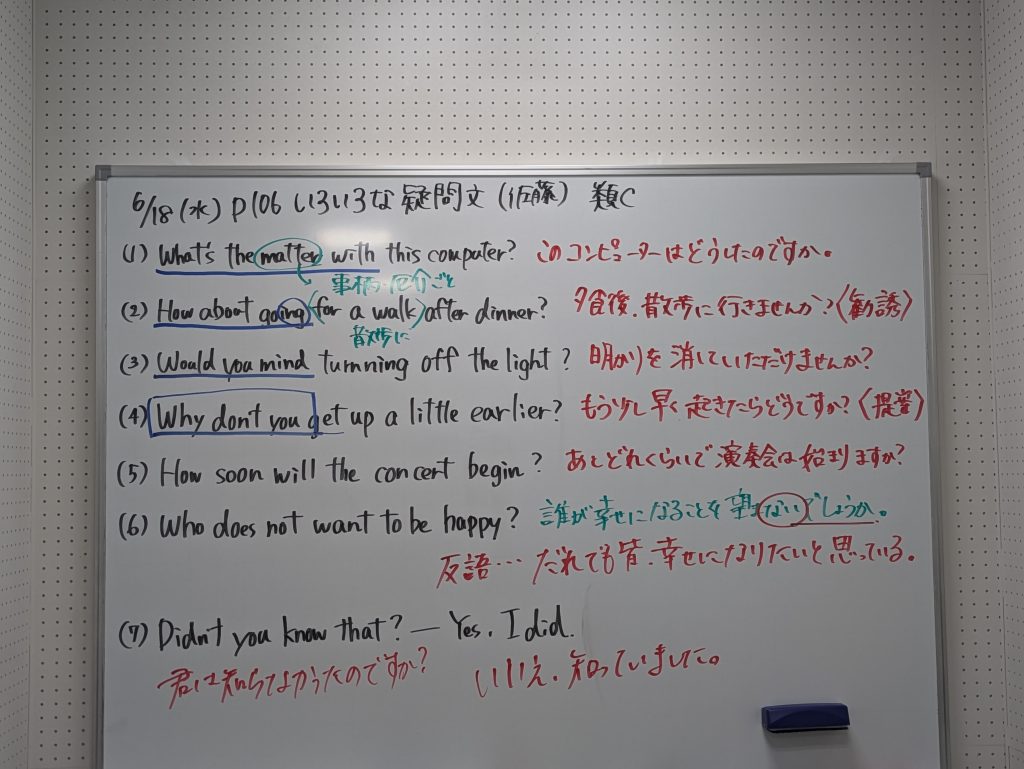 6/18(水) P106 いろいろな疑問文 (佐藤) 類C
(1) What's the matter with this computer? このコンピューターはどうしたのですか。
事柄・厄介ごと
(2) How about going (for a walk) after dinner? 夕食後、散歩に行きませんか?〈勧誘〉
散歩に
(3) Would you mind turnning off the light? 明かりを消していただけませんか?
(4) Why don't you get up a little earlier? もう少し早く起きたらどうですか?〈提案〉
(5) How soon will the concert begin? あとどれくらいで演奏会は始まりますか?
(6) Who does not want to be happy? 誰が幸せになることを望まないでしょうか。
反語… だれでも皆、幸せになりたいと思っている。
(7) Didn't you know that? — Yes, I did.
君は知らなかったのですか? いいえ、知っていました。